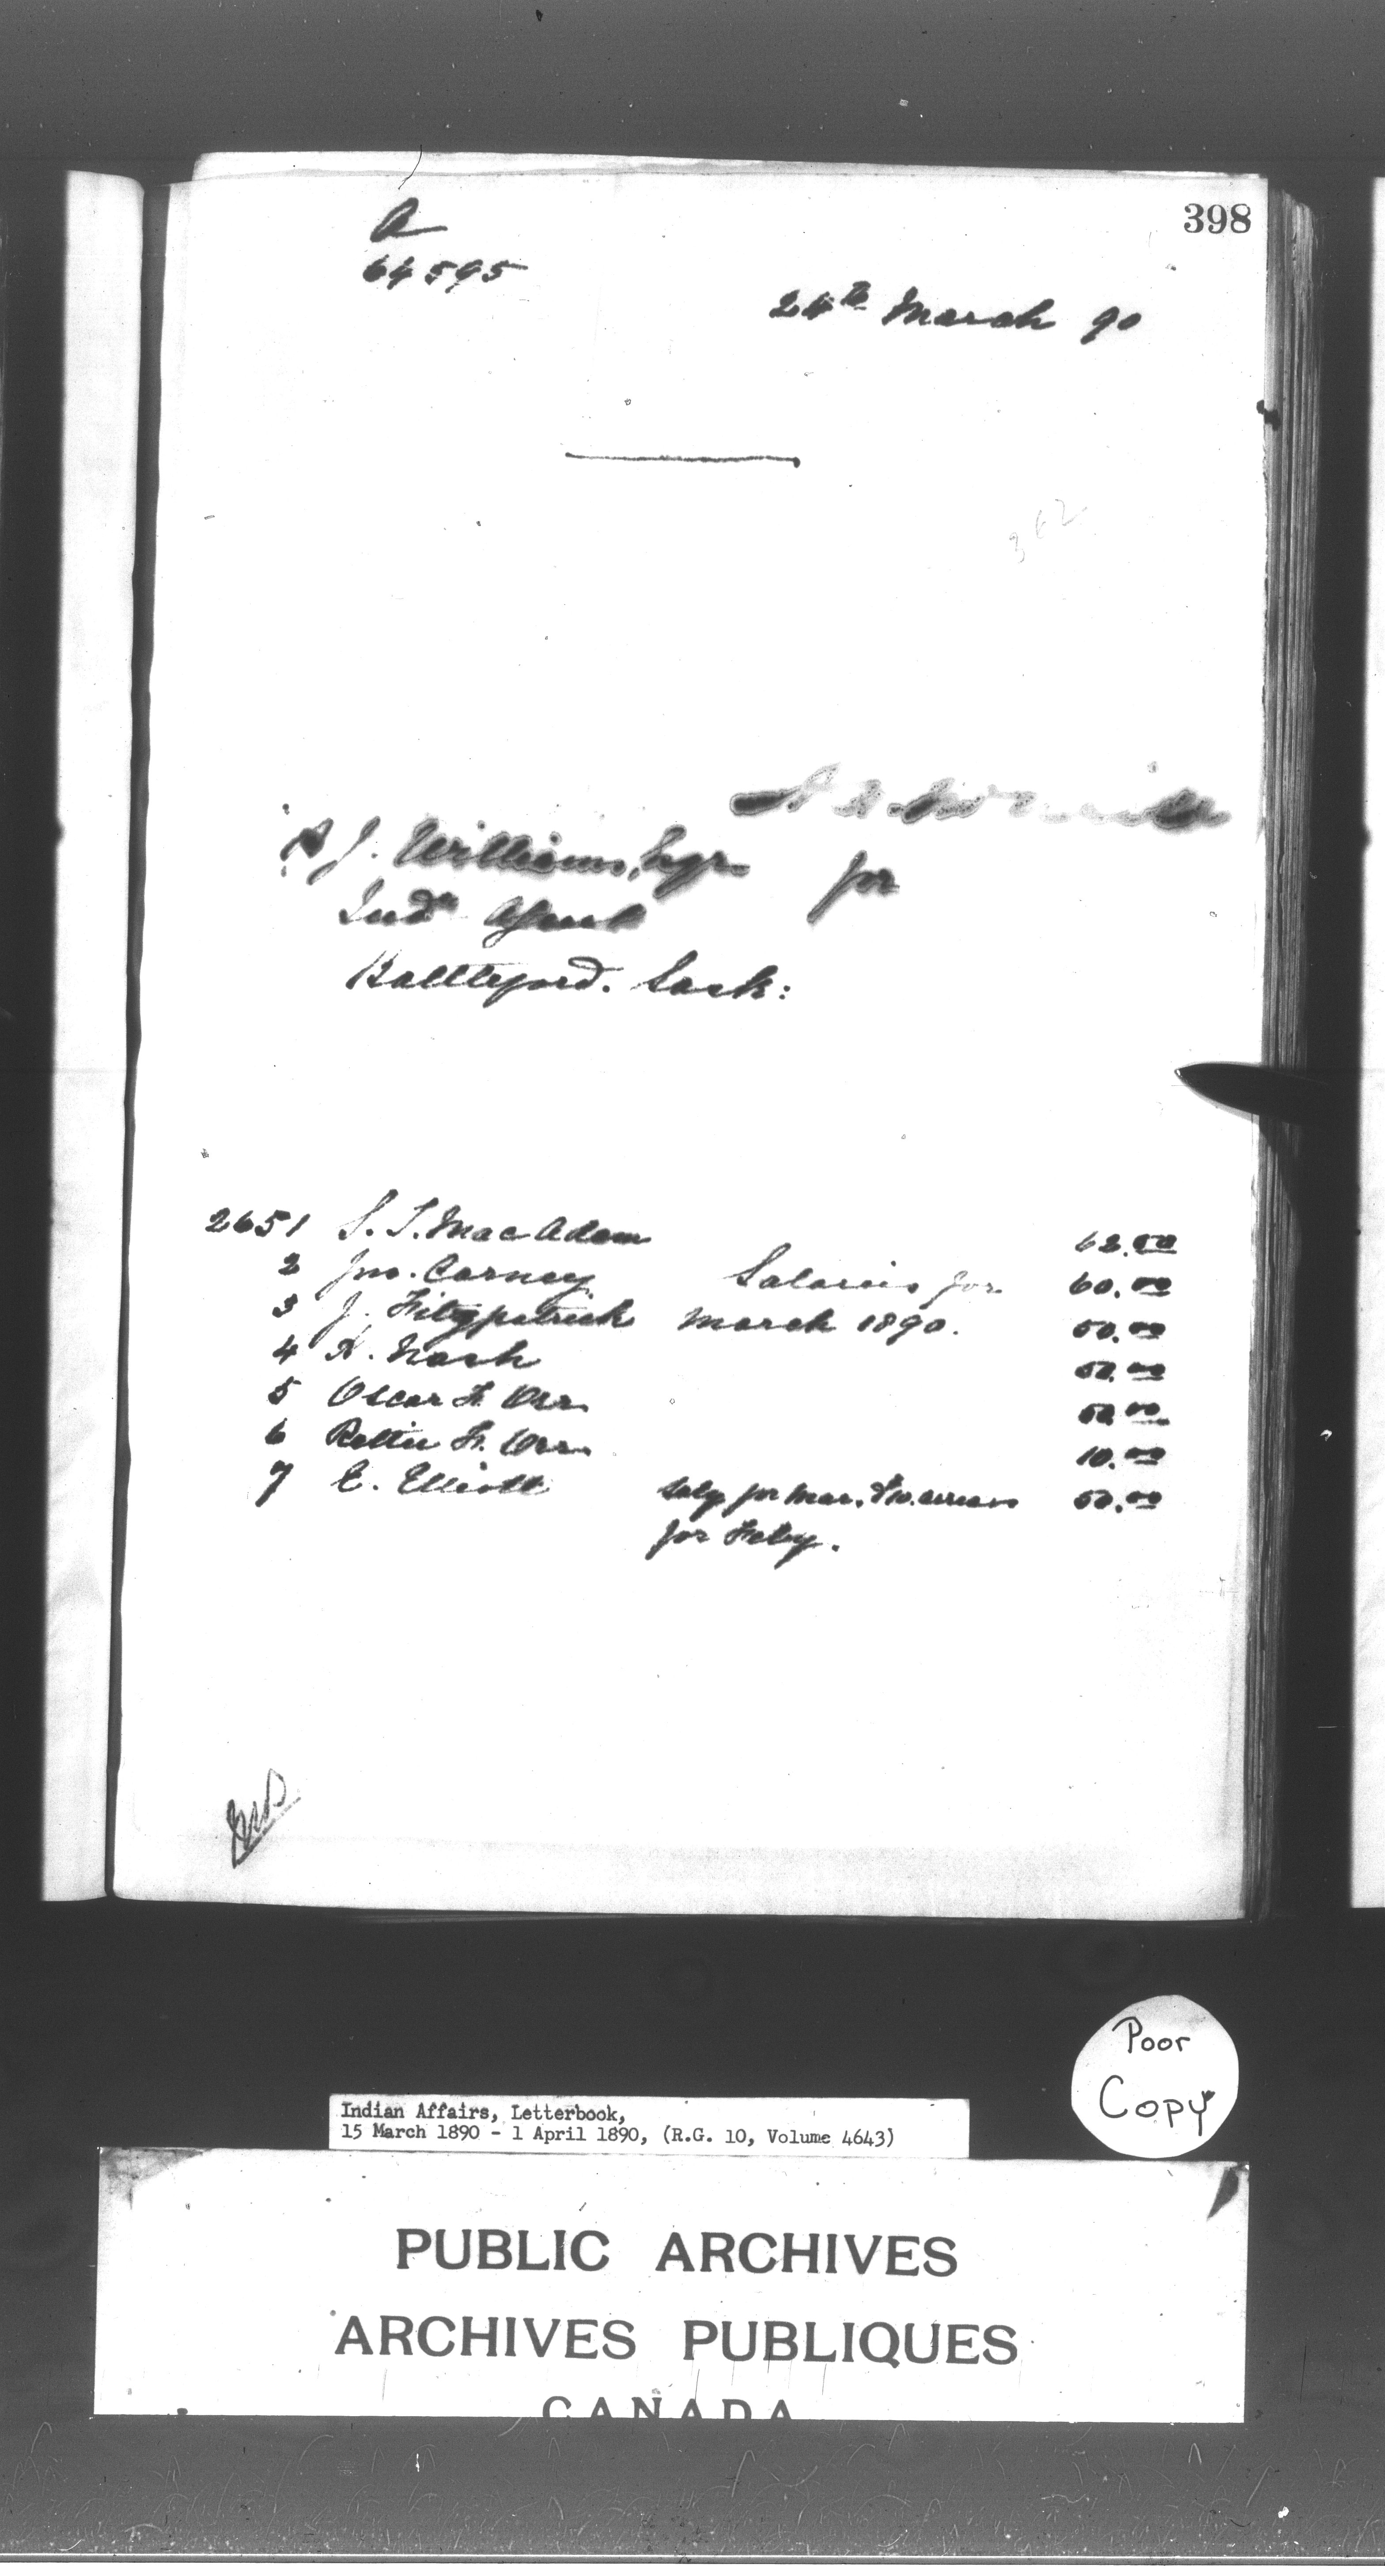 398
A
64595
24th March 90
362
P. J. Williams, Esqr.
for
Indn Agent
Battleford. Sask:
2651 S. T. MacAdam 62.00
2 Jno. Carney Salaries for 60.00
3 J. Fitzpatrick March 1890. 50.00
4 H. Nash 50.00
5 Oscar F. Orr 50.00
6 F. Orr 10.00
7 E. Elliott Saly for Mar. & 10. arrears 50.00
for Feby.
Poor
Copy
Indian Affairs, Letterbook,
15 March 1890 - 1 April 1890, (R.G. 10, Volume 4643)
PUBLIC ARCHIVES
ARCHIVES PUBLIQUES
CANADA